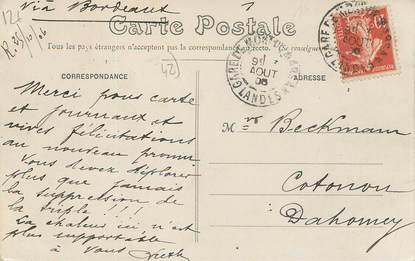 via Bordeaux
Carte Postale
Tous les pays étrangers n'acceptent pas la correspondance au recto.
CORRESPONDANCE
ADRESSE
42
GARE DE MONT-DE-MARSAN
9
AOUT
06
LANDES
Merci pour carte
et journaux et
vives félicitations
au nouveau promu
Vous devez déplorer
plus que jamais
la suppression de
la triple !!!
La chaleur ici n'est
plus supportable
à vous
Mr Beckmann
Cotonou
Dahomey